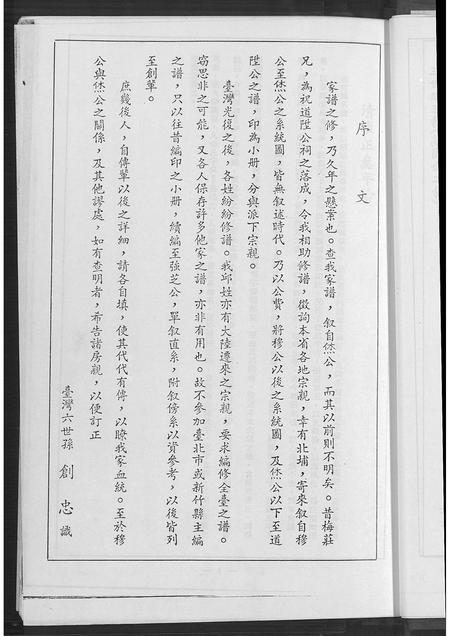 序文
家譜之修，乃久年之懸案也。查我家譜，叙自烋公，而其以前則不明矣。昔梅莊
兄，為祝道陞公祠之落成，令我相助修譜，徵詢本省各地宗親，幸有北埔，寄來叙自穆
公至烋公之系統圖，皆無叙述時代。乃以公費，將穆公以後之系統圖，及烋公以下至道
陞公之譜，印為小册，分與派下宗親。
臺灣光復之後，各姓紛紛修譜。我邱姓亦有大陸遷來之宗親，要求編修全臺之譜。
窃思非之可能，又各人保存許多他家之譜，亦非有用也。故不參加臺北市或新竹縣主編
之譜，只以往昔編印之小册，續編至強芝公，單叙直系，附叙傍系以資參考，以後皆列
至創輩。
庶幾後人，自傳輩以後之詳細，請各自填，使其代代有傳，以瞭我家血統。至於穆
公與烋公之關係，及其他謬處，如有查明者，希告諸房親，以便訂正
臺灣六世孫 創忠 識